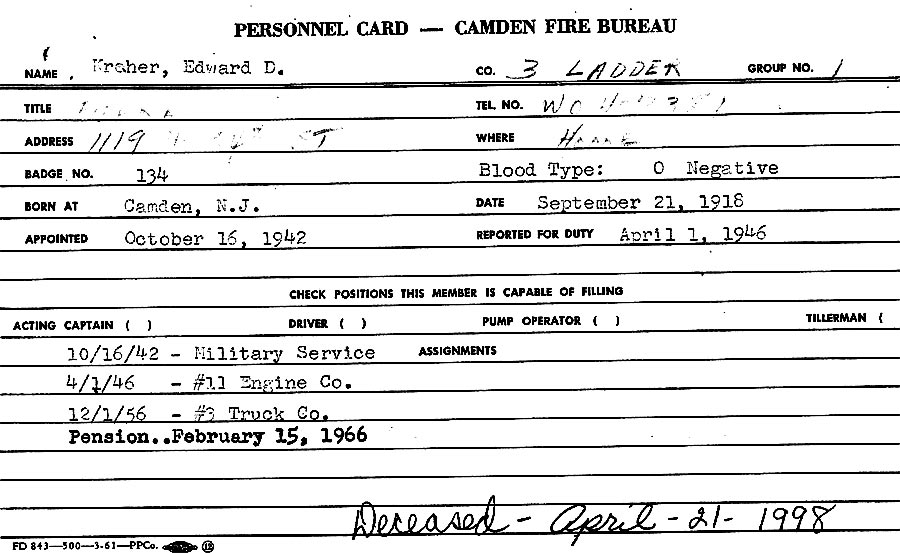 PERSONNEL CARD — CAMDEN FIRE BUREAU
NAME Kraher, Edward D. CO. 3 LADDER GROUP NO. 1
TITLE TEL. NO. WO
ADDRESS 1119 ST WHERE HOME
BADGE NO. 134 Blood Type: O Negative
BORN AT Camden, N.J. DATE September 21, 1918
APPOINTED October 16, 1942 REPORTED FOR DUTY April 1, 1946
CHECK POSITIONS THIS MEMBER IS CAPABLE OF FILLING
ACTING CAPTAIN ( ) DRIVER ( ) PUMP OPERATOR ( ) TILLERMAN (
10/16/42 - Military Service ASSIGNMENTS
4/1/46 - #11 Engine Co.
12/1/56 - #3 Truck Co.
Pension..February 15, 1966
Deceased - April - 21 - 1998
FD 843—500—3-61—PPCo.